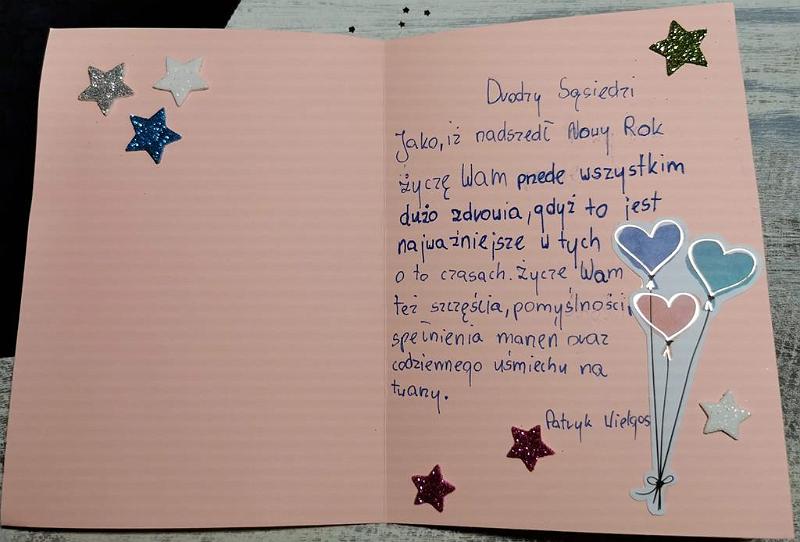 Drodzy Sąsiedzi
Jako, iż nadszedł Nowy Rok
życzę Wam przede wszystkim
dużo zdrowia, gdyż to jest
najważniejsze w tych
o to czasach. Życzę Wam
też szczęścia, pomyślności,
spełnienia marzeń oraz
codziennego uśmiechu na
twarzy.
Patryk Wielgos